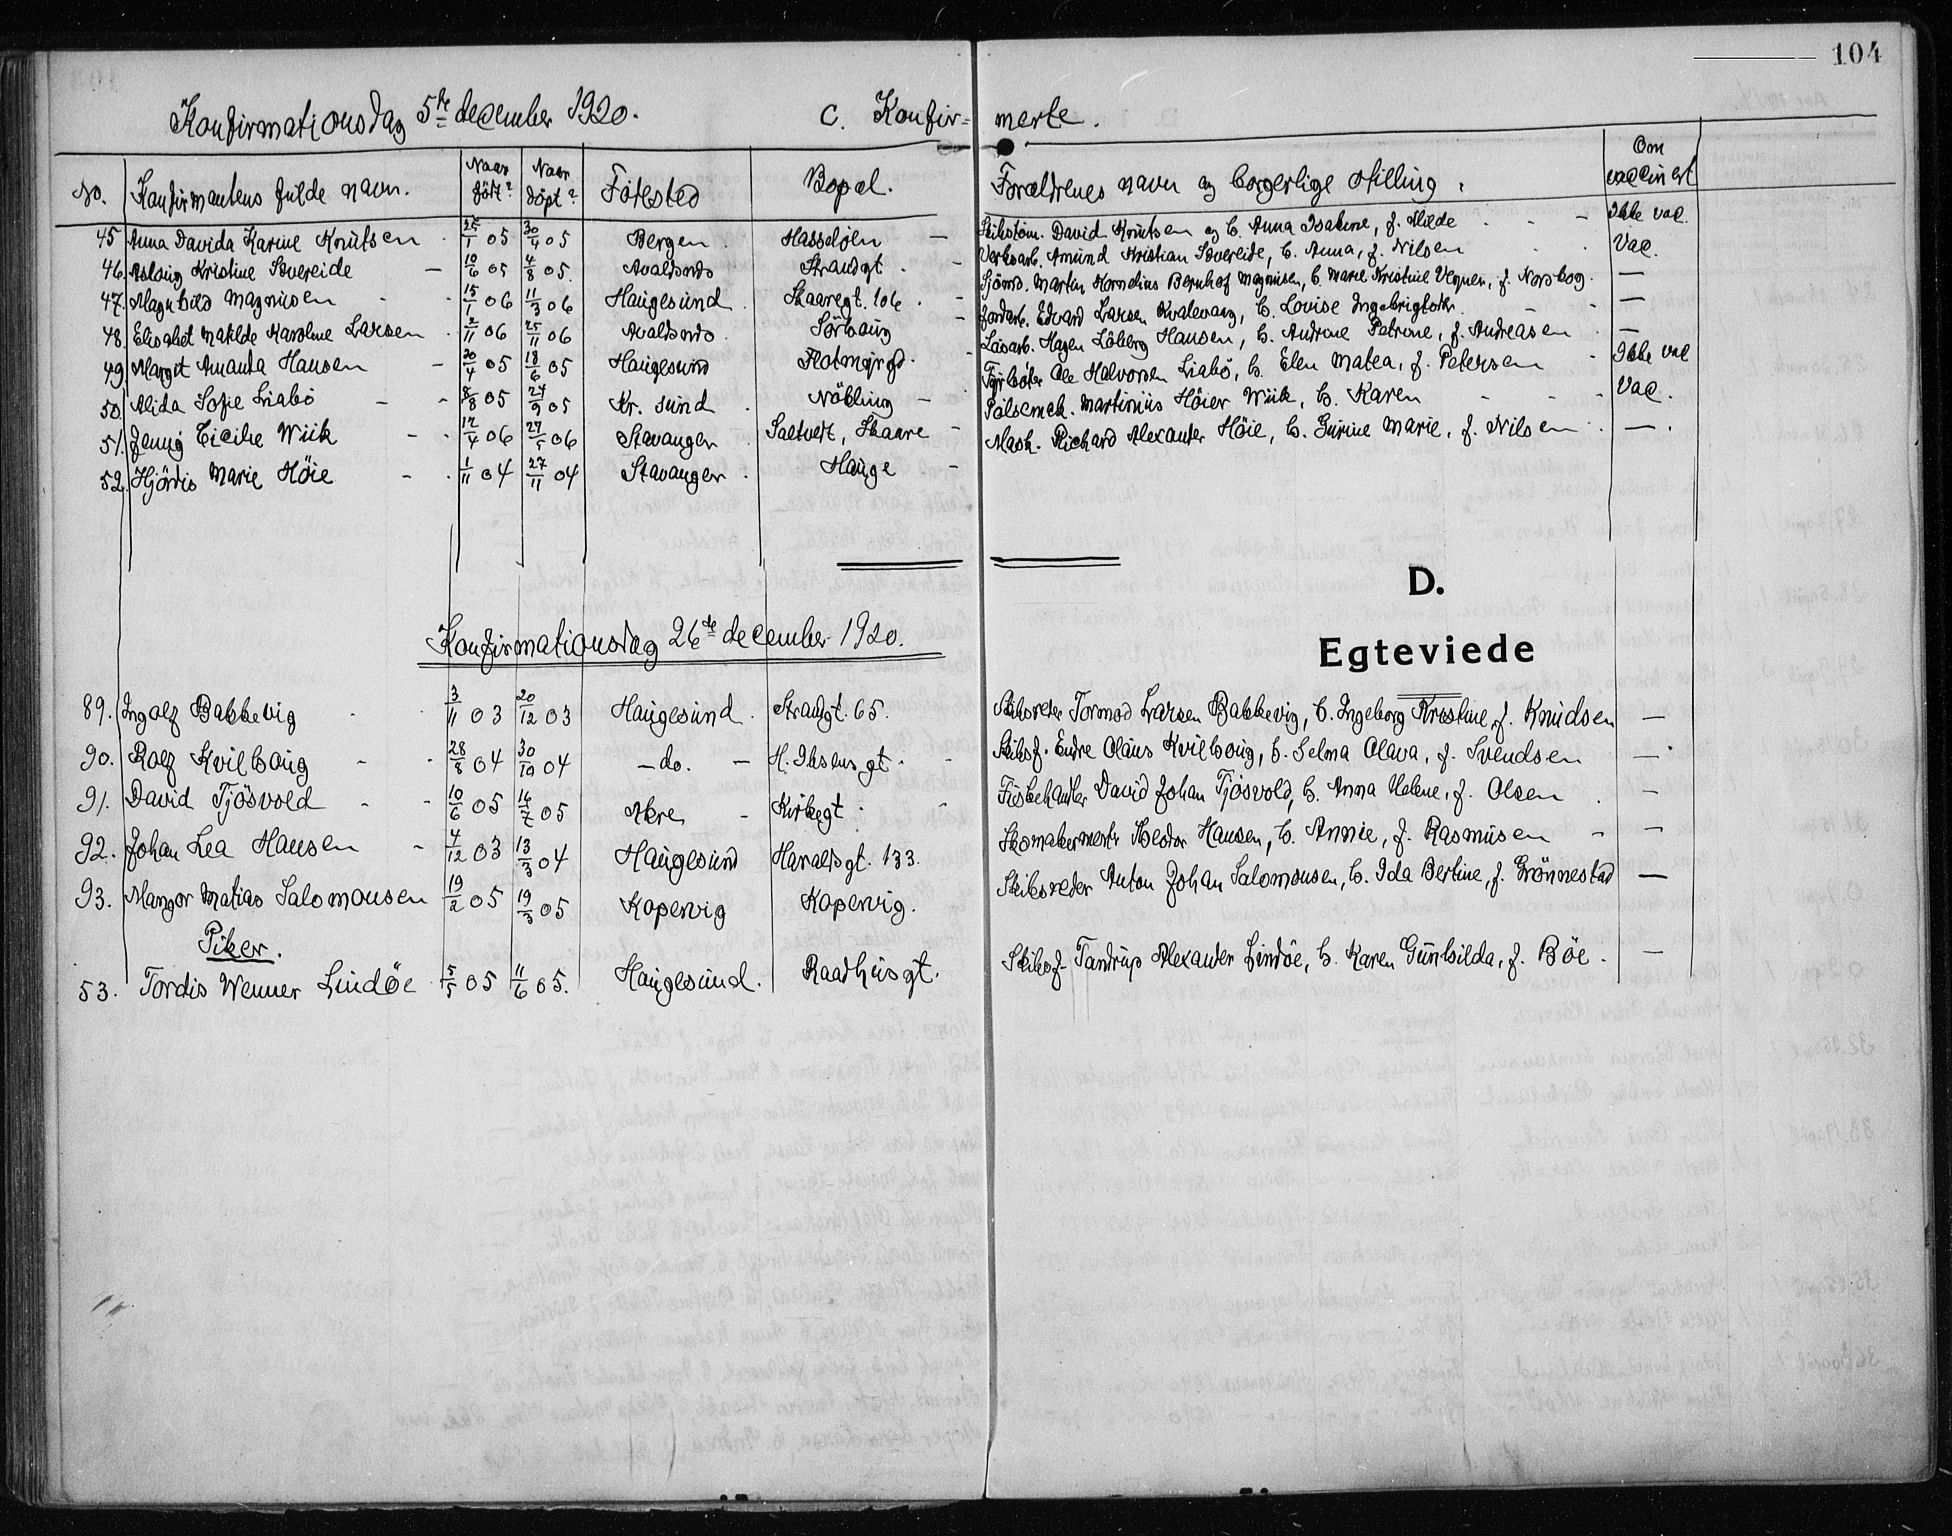 104
Konfirmationsdag 5te december 1920. C. Konfir= merte.
No. Konfirmantens fulde navn. Naar født? Naar døpt? Fødested Bopæl. Forældrenes navn og borgerlige stilling. Om vaccinert
45 Anna Davida Karine Knutsen 25/1 05 30/4 05 Bergen Hasseløen – David Knutsen og h. Anna Isakine, f. Ikke vac.
46. Aslaug Kristine Sævereide – 10/6 05 4/8 05. Avaldsnes Strandgt. – Verksarb. Amund Kristian Sævereide, h. Anna, f. Nilsen Vac.
47. Magnhild Magnusen 15/1 06 11/3 06 Haugesund. Skaaregt. 106. – Martin Kornelius Bernhof Magnusen, h. Marie Kristine f. Nordbog. —
48. Elisabet Matilde Karoline Larsen 2/11 06 25/11 06 Avaldsnes. Sørhaug – Jordarb. Edvard Larsen Kvalevaag, h. Lovise Ingebrigtsdtr. —
49. Margit Amanda Hansen – 20/4 05 18/6 05 Haugesund Flotmyrgd. – Løsarb. Hagen Løberg Hansen, h. Andrine Petrine, f. Andreasen —
50. Alida Sofie Liabø 8/8 05 24/9 05 Kr. sund Nøkling – Fyrbøter Ole Halvorsen Liabø, h. Elen Matea, f. Petersen Ikke vac
51. Jenny Cicilie Wiik 12/4 06 27/5 06 Stavanger Saltveit, Skaare – Pølsemak. Martinius Høier Wiik, h. Karen Vac.
52. Hjørdis Marie Høie 1/11 04 27/11 04 Stavanger. Hauge – Mask. Richard Alexander Høie, h. Gurine Marie, f. Nilsen —.
D.
Egteviede
Konfirmationsdag 26de december 1920.
89. Ingolf Bakkevig 3/11 03 20/12 03 Haugesund. Strandgt. 65. Skibsreder Tormod Larsen Bakkevig, h. Ingeborg Kristine, f. Knudsen —
90. Rolf Kvilhaug 28/8 04 30/10 04 – do. – H. Ibsens gt. Skibsf. Endre Olaus Kvilhaug, h. Selma Olava, f. Svendsen —
91. David Tjøsvold 10/6 05 16/7 05 Akre – Kirkegt Fiskehandler David Johan Tjøsvold, h. Anna Helene, f. Olsen —
92. Johan Lea Hansen 4/12 03 13/3 04 Haugesund Haraldsgt. 133. Skomakermestr. Teodor Hansen, h. Annie, f. Rasmusen – —
93. Mangor Matias Salomonsen 19/2 05 19/3 05 Kopervig Kopervig. Skibsreder Anton Johan Salomonsen, h. Ida Bertine, f. Grønnestad —
Piker.
53. Tordis Wenner Lindøe 5/5 05 11/6 05. Haugesund. Raadhusgt. Skibsf. Tandrup Alexander Lindøe, h. Karen Gunhilda, f. Bøe. —